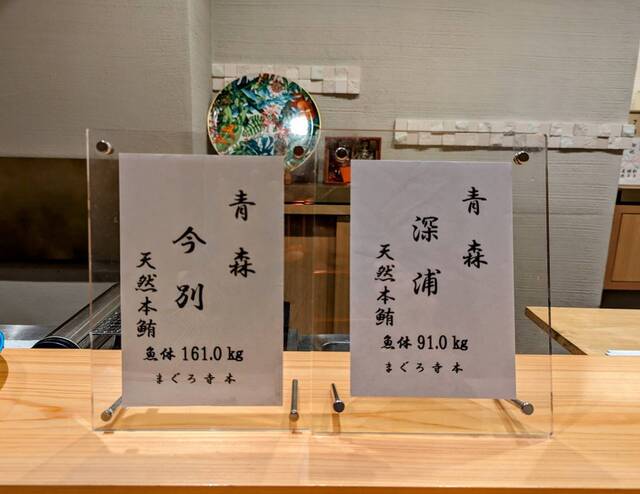 青森
今別
天然本鮪
魚体 161.0 kg
まぐろ寺本
青森
深浦
天然本鮪
魚体 91.0 kg
まぐろ寺本